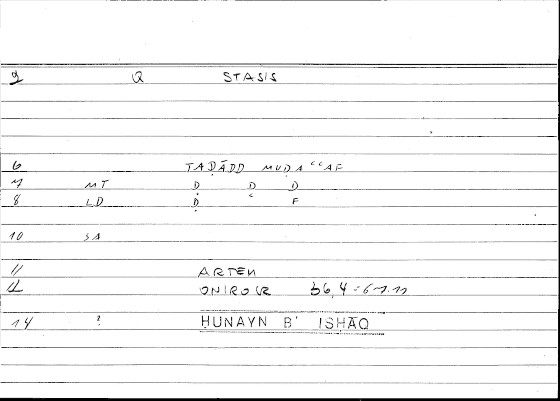 2 Q STASIS
6 TAḌĀDD MUḌAʿʿAF
7 MT D D D
8 LD D F
10 SA
11 ARTEM
12 ONIROCR
14 ? HUNAYN B' ISHĀQ